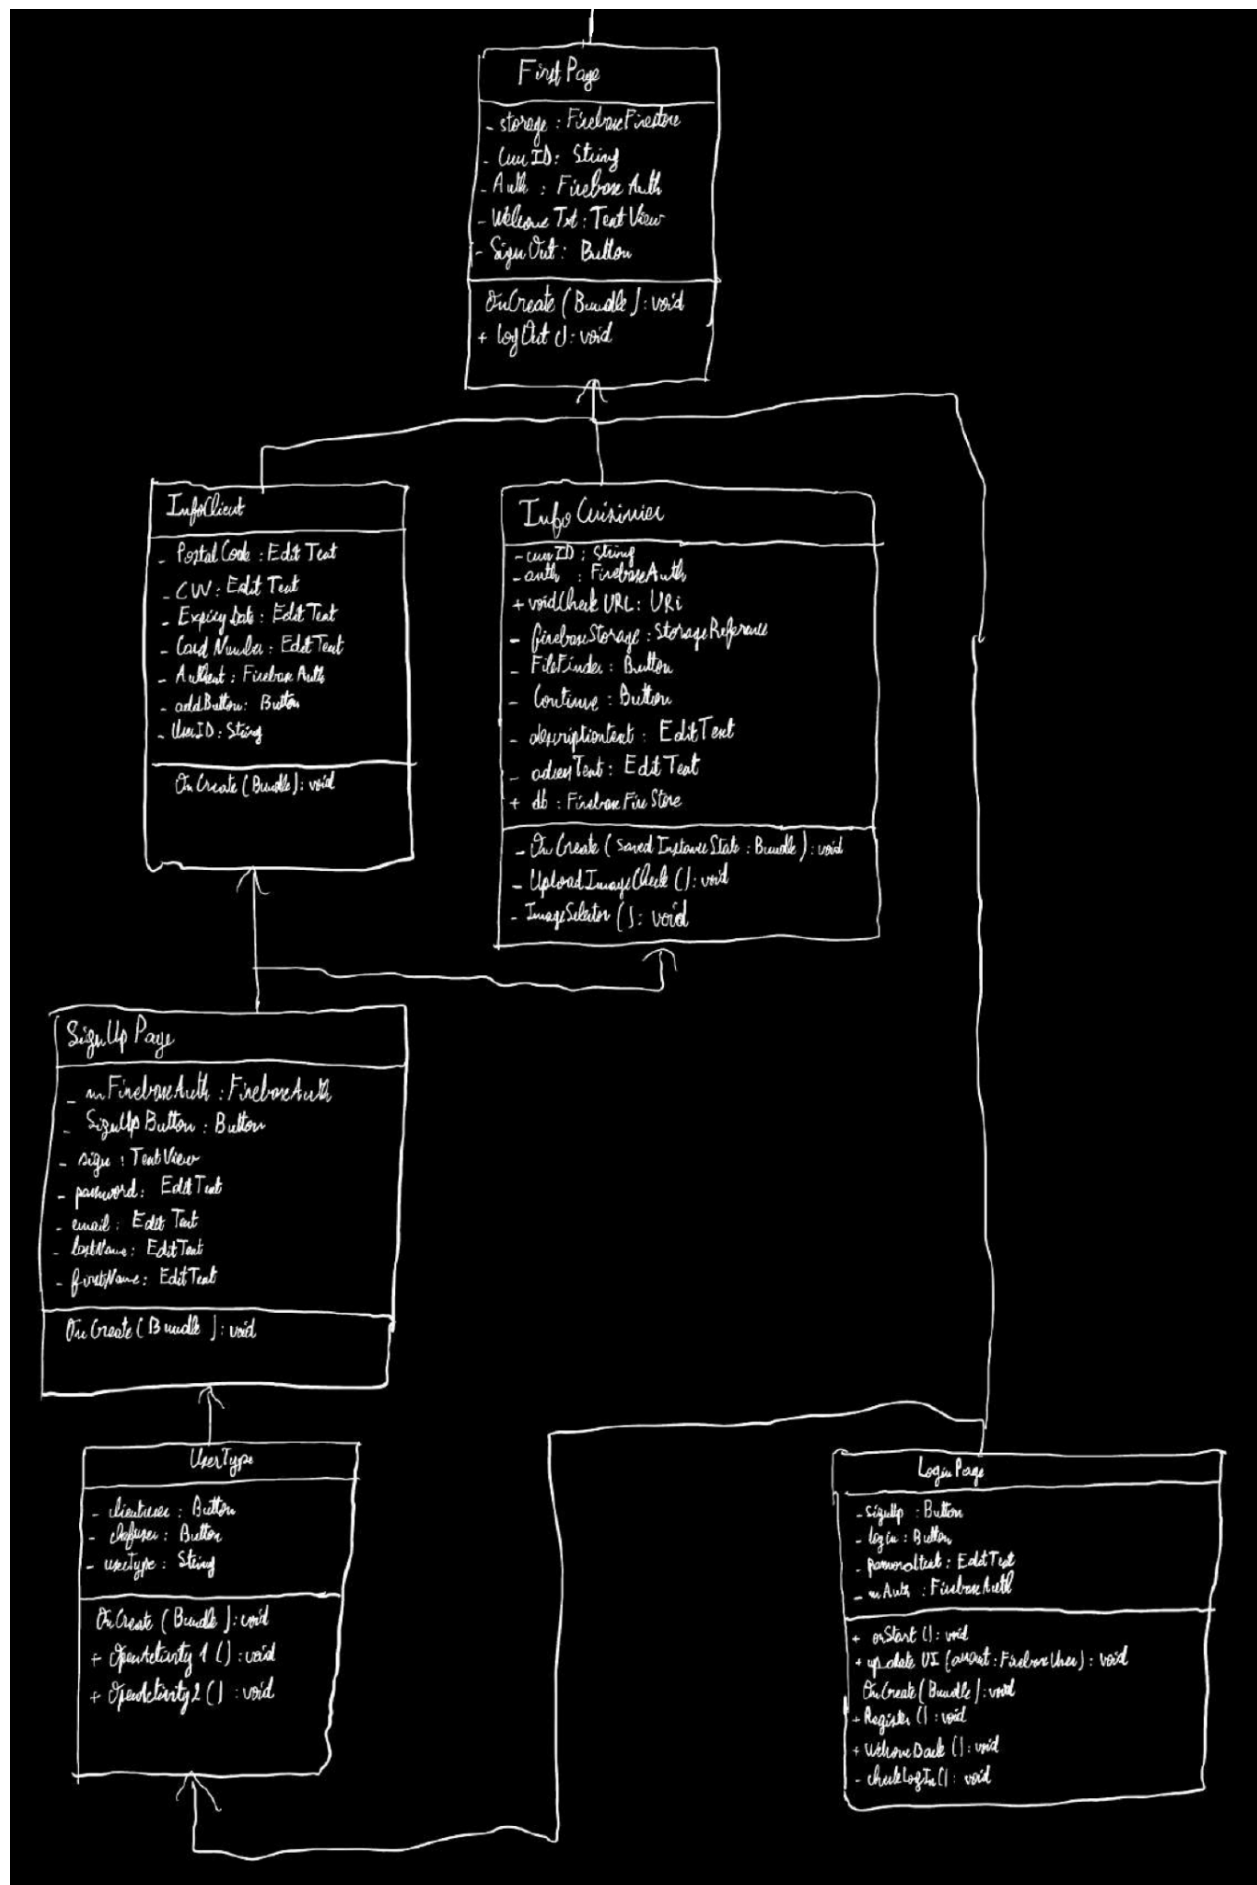 FirstPage
- storage : FirebaseFirestore
- CurrID : String
- Auth : FirebaseAuth
- Welcome Txt : TextView
- SignOut : Button
OnCreate (Bundle) : void
+ logOut () : void
InfoClient
- PostalCode : EditText
- CVV : EditText
- ExpiryDate : EditText
- CardNumber : EditText
- Authent : FirebaseAuth
- addButton : Button
- UserID : String
OnCreate (Bundle) : void
InfoCuisinier
- currID : String
- auth : FirebaseAuth
+ voidCheckURL : URi
- firebaseStorage : StorageReference
- FileFinder : Button
- Continue : Button
- descriptiontext : EditText
- adressText : EditText
+ db : FirebaseFireStore
- OnCreate ( savedInstanceState : Bundle ) : void
- UploadImageCheck () : void
- ImageSelector () : void
SignUp Page
- mFirebaseAuth : FirebaseAuth
- SignUpButton : Button
- sign : TextView
- password : EditText
- email : EditText
- lastName : EditText
- firstName : EditText
OnCreate (Bundle) : void
UserType
- clientuser : Button
- chefuser : Button
- userType : String
OnCreate (Bundle) : void
+ OpenActivity1 () : void
+ OpenActivity2 () : void
LoginPage
- signUp : Button
- login : Button
- passwordtext : EditText
- mAuth : FirebaseAuth
+ onStart () : void
+ update UI (account : FirebaseUser) : void
OnCreate (Bundle) : void
+ Register () : void
+ WelcomeBack () : void
- checkLogIn () : void